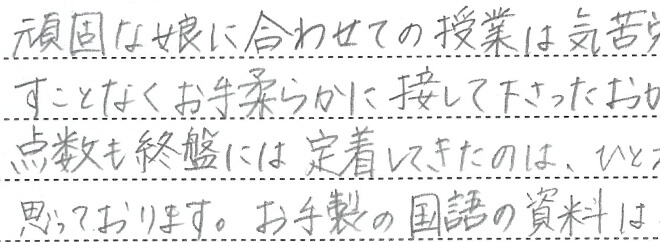 頑固な娘に合わせての授業は気苦労
すことなくお手柔らかに接して下さったおか
点数も終盤には定着してきたのは、ひと
思っております。お手製の国語の資料は